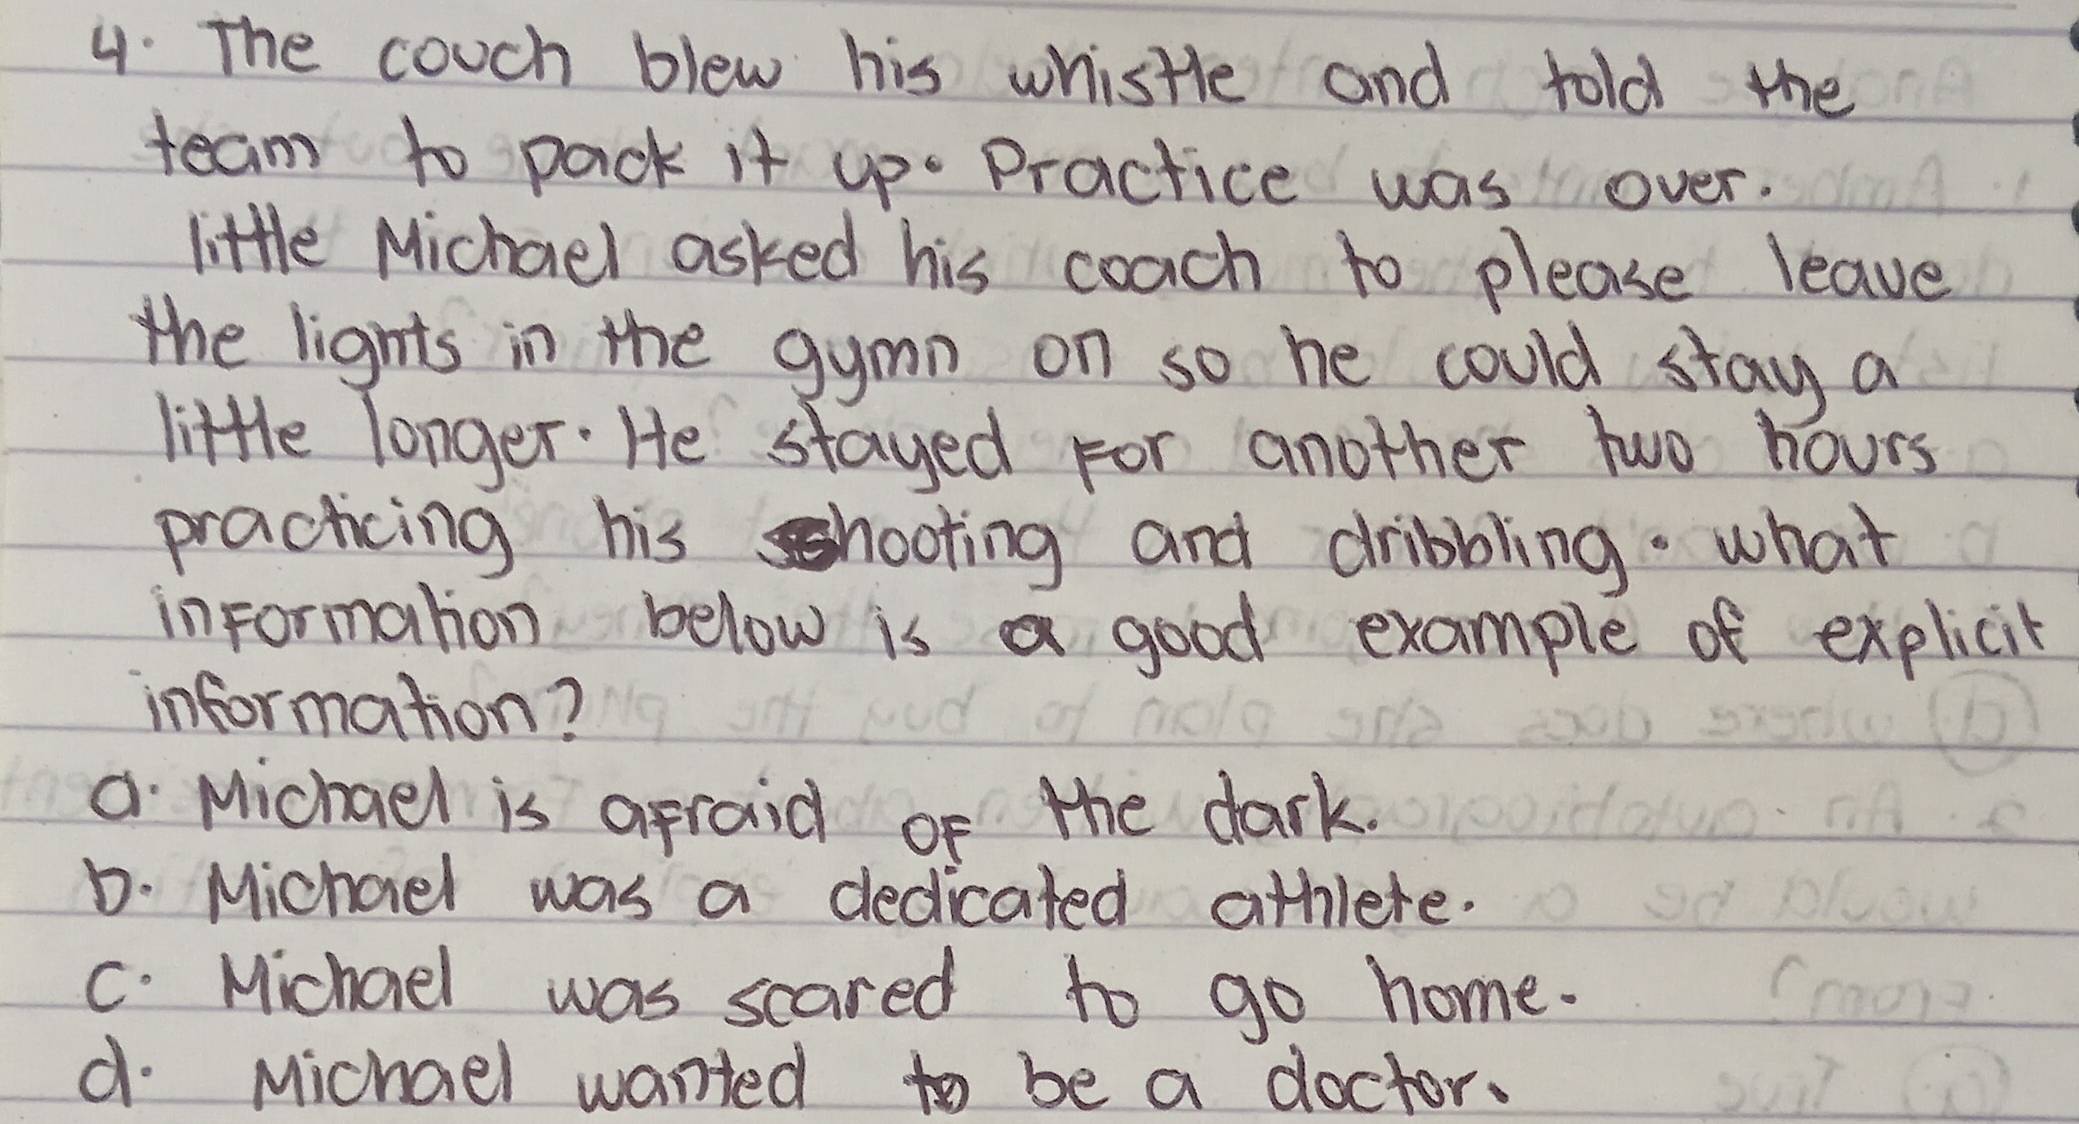 4. The couch blew his whistle and told the
team to pack it up. Practice was over.
little Michael asked his coach to please leave
the lights in the gymn on so he could stay a
little longer. He stayed For another two hours
practicing his shooting and dribbling. what
inFormation below is a good example of explicit
information?
a. Michael is aFraid oF the dark.
b. Michael was a dedicated athlete.
c. Michael was scared to go home.
d. Michael wanted to be a doctor.